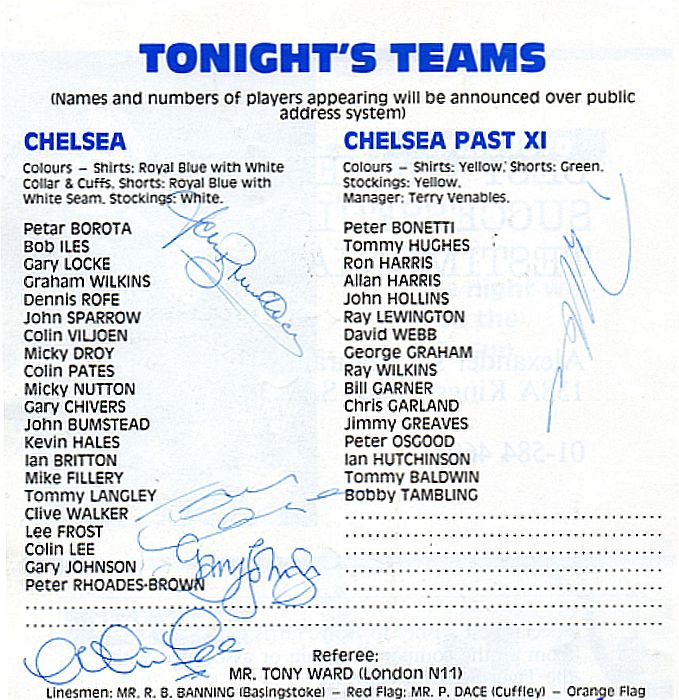 TONIGHT'S TEAMS
(Names and numbers of players appearing will be announced over public
address system)
CHELSEA
Colours – Shirts: Royal Blue with White
Collar & Cuffs. Shorts: Royal Blue with
White Seam. Stockings: White.
Petar BOROTA
Bob ILES
Gary LOCKE
Graham WILKINS
Dennis ROFE
John SPARROW
Colin VILJOEN
Micky DROY
Colin PATES
Micky NUTTON
Gary CHIVERS
John BUMSTEAD
Kevin HALES
Ian BRITTON
Mike FILLERY
Tommy LANGLEY
Clive WALKER
Lee FROST
Colin LEE
Gary JOHNSON
Peter RHOADES-BROWN
CHELSEA PAST XI
Colours – Shirts: Yellow. Shorts: Green.
Stockings: Yellow.
Manager: Terry Venables.
Peter BONETTI
Tommy HUGHES
Ron HARRIS
Allan HARRIS
John HOLLINS
Ray LEWINGTON
David WEBB
George GRAHAM
Ray WILKINS
Bill GARNER
Chris GARLAND
Jimmy GREAVES
Peter OSGOOD
Ian HUTCHINSON
Tommy BALDWIN
Bobby TAMBLING
Gary Johnson
Colin Lee
Referee:
MR. TONY WARD (London N11)
Linesmen: MR. R. B. BANNING (Basingstoke) – Red Flag: MR. P. DACE (Cuffley) – Orange Flag